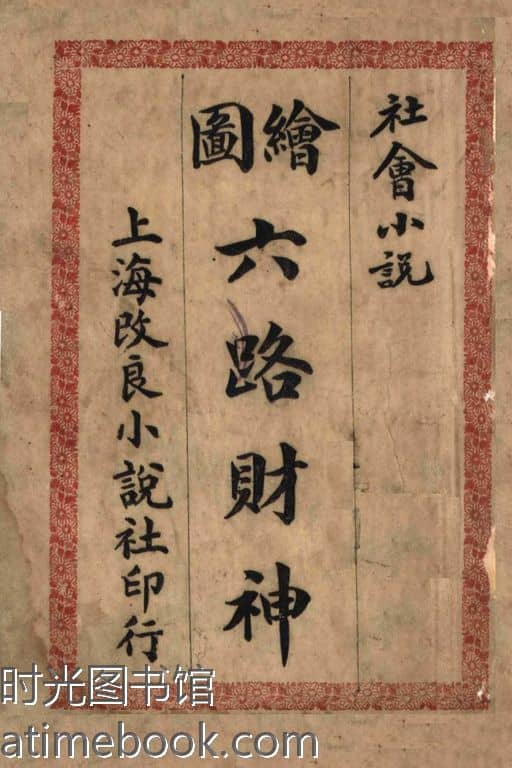 社會小説
繪圖
六路財神
上海改良小說社印行
时光图书馆
atimebook.com